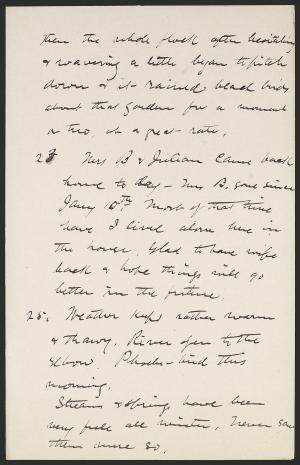 then the whole flock after hesitating
& wavering a little began to pitch
down & it rained black birds
about that garden for a moment
or two, at a great rate.
23 Mrs B & Julian came back
home to day — Mrs B. gone since
Jany 10th Most of that time
have I lived alone here in
the house. Glad to have wife
back & hope things will go
better in the future.
25. Weather kept rather warm
& thawy. River open to the
Elbow. Phoebe-bird this
morning.
Streams & springs have been
very full all winter, never saw
them more so.